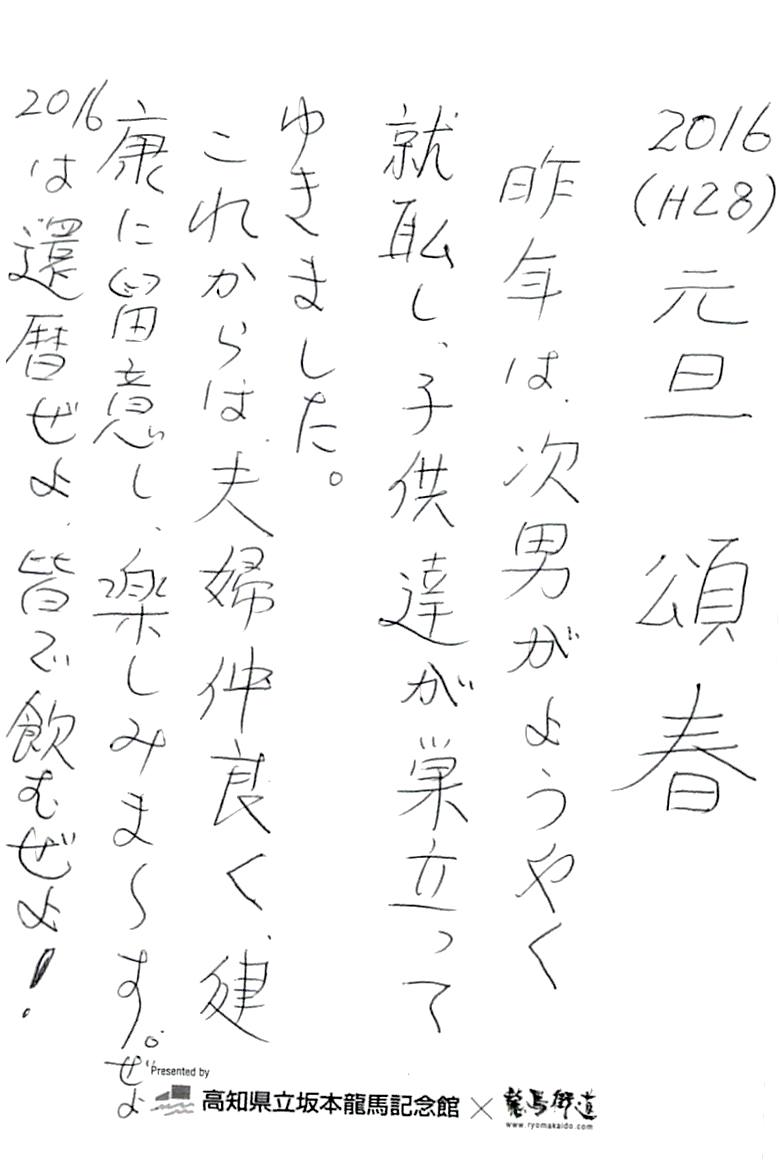 2016
(H28)元旦 頌春
昨年は、次男がようやく
就耺し、子供達が巣立って
ゆきました。
これからは、夫婦仲良く、健
康に留意し、楽しみま〜す。ぜよ
2016は還暦ぜよ、皆で飲むぜよ!
Presented by
高知県立坂本龍馬記念館×龍馬街道
www.ryomakaido.com